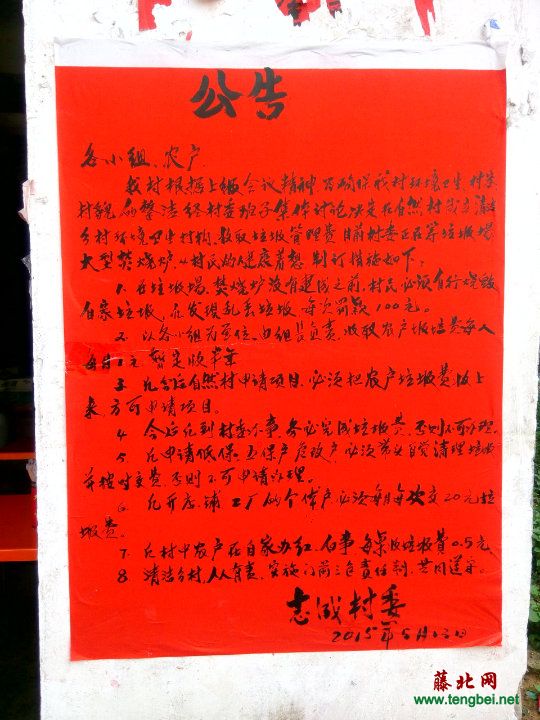 公告
各小组、农户
我村根据上级会议精神 为确保我村环境卫生,村容
村貌的整洁经村委班子集体讨论决定在自然村成立清洁
乡村环境卫生村机构,收取垃圾管理费目前村委正在筹垃圾场
大型焚烧炉,从村民的健康着想 制订措施如下:
1.在垃圾场,焚烧炉没有建成之前,村民必须自行烧毁
自家垃圾,在发现乱丢垃圾 每次罚款100元。
2.以各小组为单位,由组长负责,收取农户垃圾费每人
每月1元 暂定收半年
3.凡今后自然村申请项目,必须把农户垃圾费收上
来,方可申请项目。
4.今后凡到村委办事,务必完成垃圾费,否则不可办理。
5.凡申请低保、五保户危改户必须带头自觉清理垃圾
并按时交费,否则不可申请办理。
6.凡开店、铺、工厂的个体户必须每月每次交20元垃
圾费。
7.凡村中农户在自家办红、白事 每桌收垃圾费0.5元
8.清洁乡村,人人有责,实施门前三包责任制,共同遵守。
志成村委
2015年5月13日
藤北网
www.tengbei.net